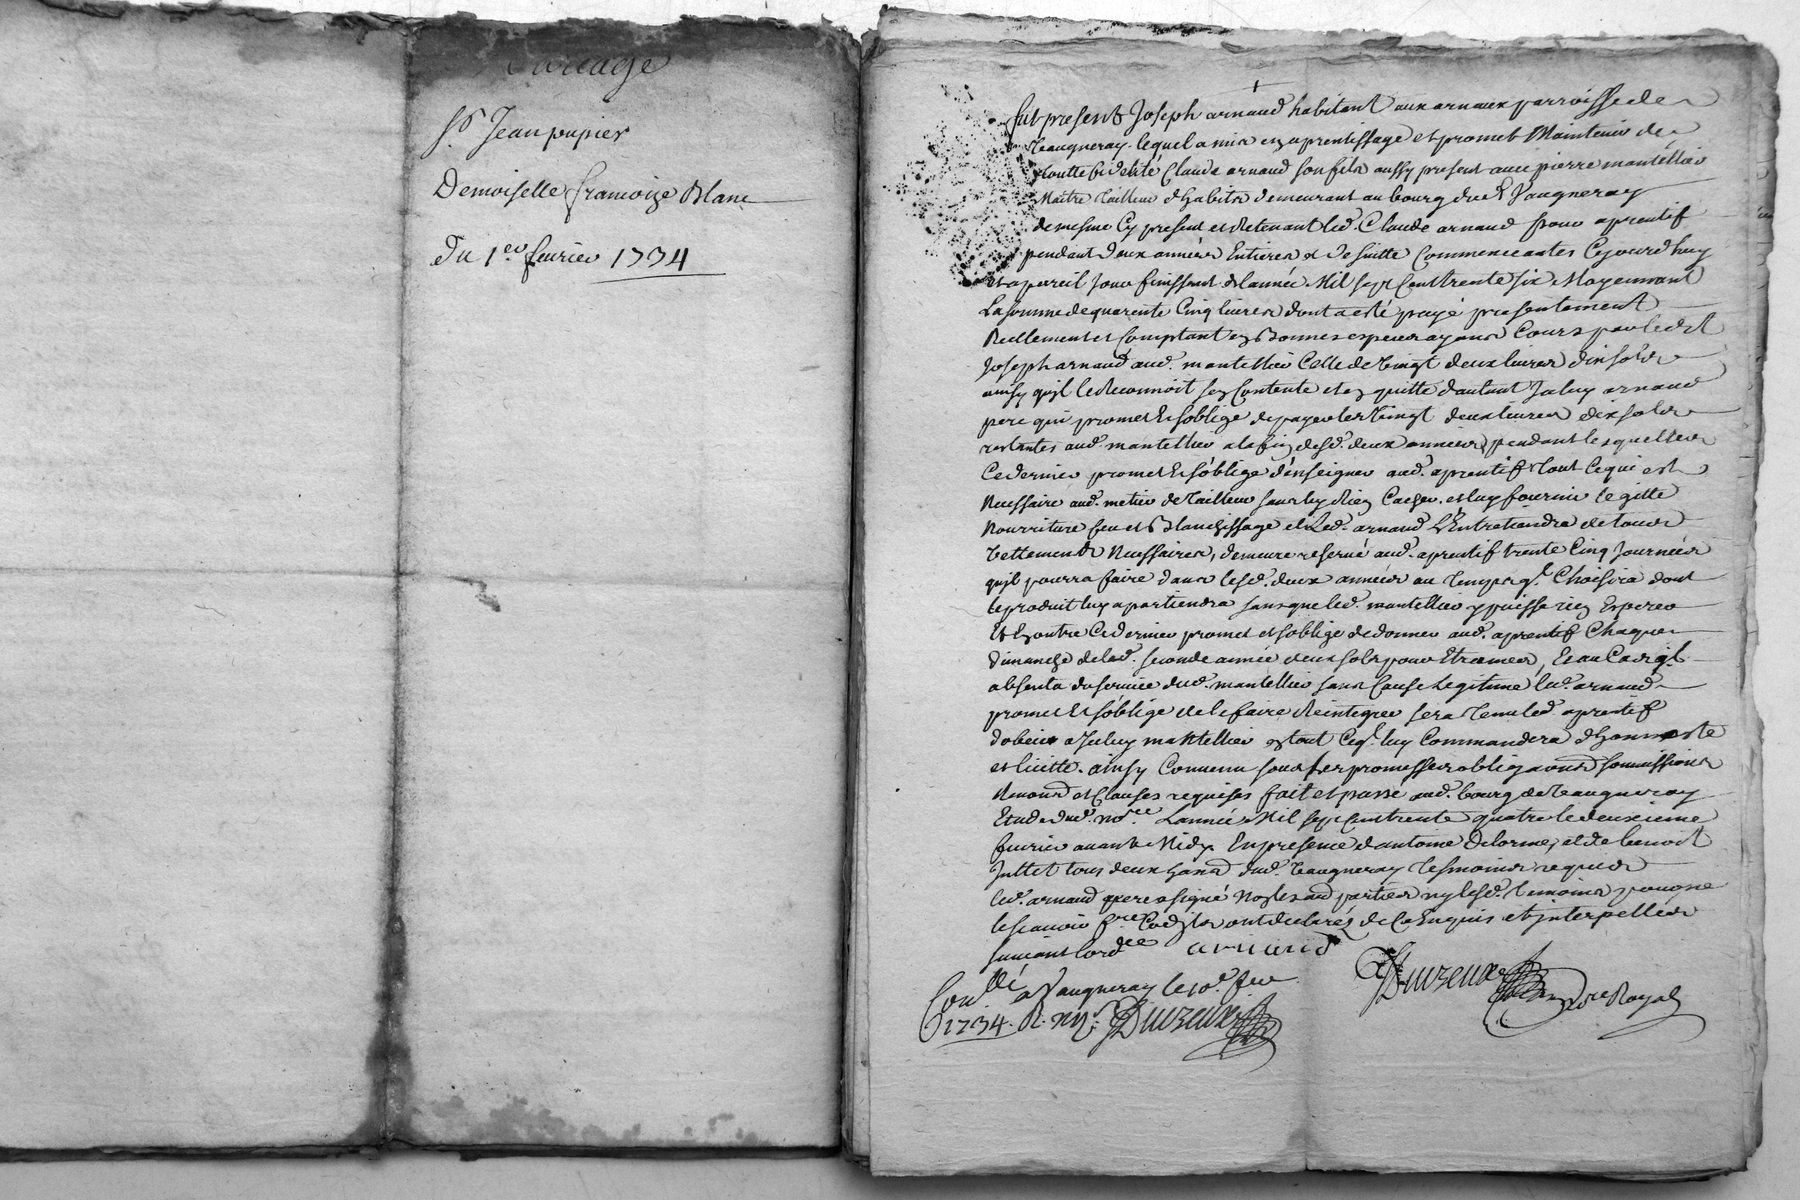 Mariage
Sr. Jean pupier
Demoiselle francoize Blanc
Du 1er. feurier 1734
fut present Joseph arnaud habitant aux arnaux parroisse de
Vaugneray. lequel a mis en aprentissage et promet Maintenir de
toutte fidelité Claude arnaud son fils aussy present auec pierre mantellier
Maitre Tailleur d'habits demeurant au bourg dud. Vaugneray
de mesme Cy present et Retenant led. Claude arnaud pour aprentif
pendant deux années Entieres et de suitte Commenceantes Cejourd'huy
Et a pareil Jour finissant de lannée Mil sept Cent trente six Moyennant
La somme de quarente Cinq liures dont a esté payé presentement
Reellement et Comptant en Bonnes especes ayant Cours par ledit
Joseph arnaud aud. mantellier Celle de Vingt deux liures dix sols
ainsy quil le Reconnoit sen Contente et en quitte d'autant Iceluy arnaud
pere qui promet Et soblige de payer les Vingt deux liures dix sols
restantes aud. mantellier a la fin desd. deux années, pendant lesquelles
Ce dernier promet Et s'oblige d'enseigner aud. aprentif Tout Ce qui est
Necessaire aud. metier de Tailleur sans luy Rien Cacher, et luy fournir le gitte
Nourriture feu et Blanchissage et Led. arnaud L'Entretiendra de tous
Vettements Necessaires, demeure reserué aud. aprentif trente Cinq Journées
quil pourra faire dans lesd. deux années au Temps ql. Choisira dont
le produit luy apartiendra sans que led. mantellier y puisse rien Esperer
Et En outre Ce dernier promet et soblige de donner aud. aprentif Chaque
Dimanche de lad. seconde année deux sols pour Etrennes, Et au Cas ql.
absenta du seruice dud. mantellier sans Cause Legitime led. arnaud
promet Et s'oblige de le faire Reintegrer sera Tenu led. aprentif
d'obeir a Iceluy mantellier en tout Ce ql. luy Commandera d'honneste
et licitte. ainsy Conuenu sous les promesses obligaons soumissions
Renonds et Clauses requises fait et passé aud. bourg de Vaugneray
Etude dud. nore. L'année Mil sept Cent trente quatre le deuxieme
feurier auant Midy En presence d'antoine Delorme, et de benoit
Juttet tous deux dud. Vaugneray Tesmoins requis
led. arnaud pere a signé Non les aud. parties ny lesd. temoins pour ne
le scauoir fre. Ce qu'ils ont declarés de Ce Enquis et Interpellés
suiuant lordce arnaud
Conllé. a Vaugneray le 10e. feur
1734. R. xij s.
nore Royal